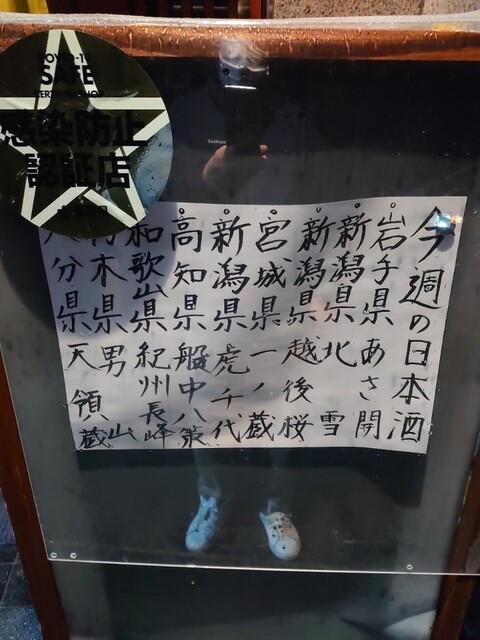 COVID-19
SAFE
CERTIFIED SHOP
感染防止
認証店
今週の日本酒
岩手県 あさ開
新潟県 北雪
新潟県 越後桜
宮城県 一ノ蔵
新潟県 虎千代
高知県 船中八策
和歌山県 紀州長峰
栃木県 男山
大分県 天領蔵